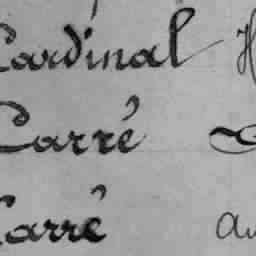 Cardinal H
Carré
Carré au